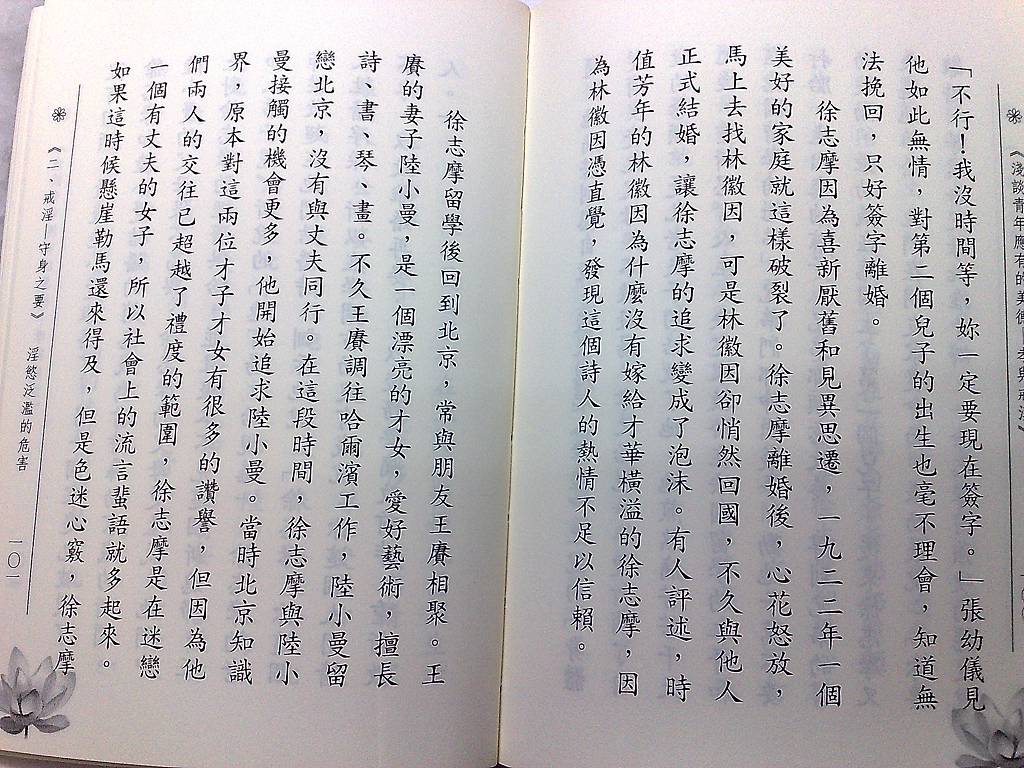 《淺談青年應有的美德
「不行！我沒時間等，妳一定要現在簽字。」張幼儀見
他如此無情，對第二個兒子的出生也毫不理會，知道無
法挽回，只好簽字離婚。
徐志摩因為喜新厭舊和見異思遷，一九二二年一個
美好的家庭就這樣破裂了。徐志摩離婚後，心花怒放，
馬上去找林徽因，可是林徽因卻悄然回國，不久與他人
正式結婚，讓徐志摩的追求變成了泡沫。有人評述，時
值芳年的林徽因為什麼沒有嫁給才華橫溢的徐志摩，因
為林徽因憑直覺，發現這個詩人的熱情不足以信賴。
徐志摩留學後回到北京，常與朋友王賡相聚。王
賡的妻子陸小曼，是一個漂亮的才女，愛好藝術，擅長
詩、書、琴、畫。不久王賡調往哈爾濱工作，陸小曼留
戀北京，沒有與丈夫同行。在這段時間，徐志摩與陸小
曼接觸的機會更多，他開始追求陸小曼。當時北京知識
界，原本對這兩位才子才女有很多的讚譽，但因為他
們兩人的交往已超越了禮度的範圍，徐志摩是在迷戀
一個有丈夫的女子，所以社會上的流言蜚語就多起來。
如果這時候懸崖勒馬還來得及，但是色迷心竅，徐志摩
《二、戒淫—守身之要》 淫慾泛濫的危害 一〇一